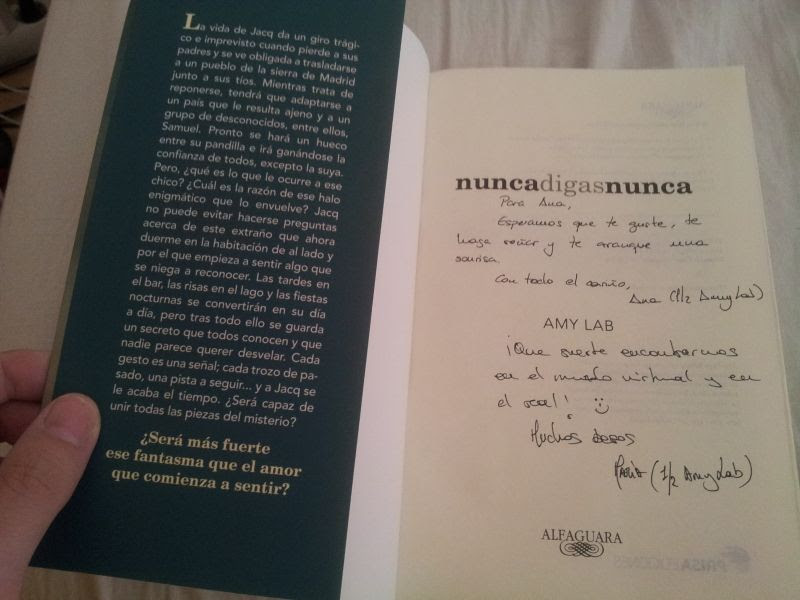 La vida de Jacq da un giro trági-
co e imprevisto cuando pierde a sus
padres y se ve obligada a trasladarse
a un pueblo de la sierra de Madrid
junto a sus tíos. Mientras trata de
reponerse, tendrá que adaptarse a
un país que le resulta ajeno y a un
grupo de desconocidos, entre ellos,
Samuel. Pronto se hará un hueco
entre su pandilla e irá ganándose la
confianza de todos, excepto la suya.
Pero, ¿qué es lo que le ocurre a ese
chico? ¿Cuál es la razón de ese halo
enigmático que lo envuelve? Jacq
no puede evitar hacerse preguntas
acerca de este extraño que ahora
duerme en la habitación de al lado y
por el que empieza a sentir algo que
se niega a reconocer. Las tardes en
el bar, las risas en el lago y las fiestas
nocturnas se convertirán en su día
a día, pero tras todo ello se guarda
un secreto que todos conocen y que
nadie parece querer desvelar. Cada
gesto es una señal; cada trozo de pa-
sado, una pista a seguir... y a Jacq se
le acaba el tiempo. ¿Será capaz de
unir todas las piezas del misterio?
¿Será más fuerte
ese fantasma que el amor
que comienza a sentir?
nuncadigasnunca
Para Ana,
Esperamos que te guste, te
haga soñar y te arranque una
sonrisa.
Con todo el cariño,
Ana (1/2 Amy Lab)
AMY LAB
¡Que suerte encontrarnos
en el mundo virtual y en
el real! :)
Muchos besos
María (1/2 Amy Lab)
ALFAGUARA